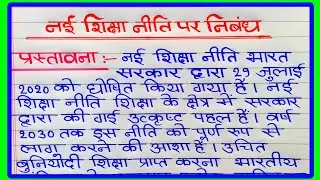 नई शिक्षा नीति पर निबंध
प्रस्तावना :- नई शिक्षा नीति भारत
सरकार द्वारा 29 जुलाई
2020 को घोषित किया गया है। नई
शिक्षा नीति शिक्षा के क्षेत्र में सरकार
द्वारा की गई उत्कृष्ट पहल है। वर्ष
2030 तक इस नीति को पूर्ण रूप से
लागू करने की आशा है। उचित
बुनियादी शिक्षा प्राप्त करना भारतीय